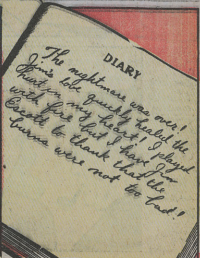 DIARY
The nightmare was over!
Jim's love quickly healed the
hurt in my heart! I played
with fire but I have Jim
Escott to thank that the
burns were not too bad!